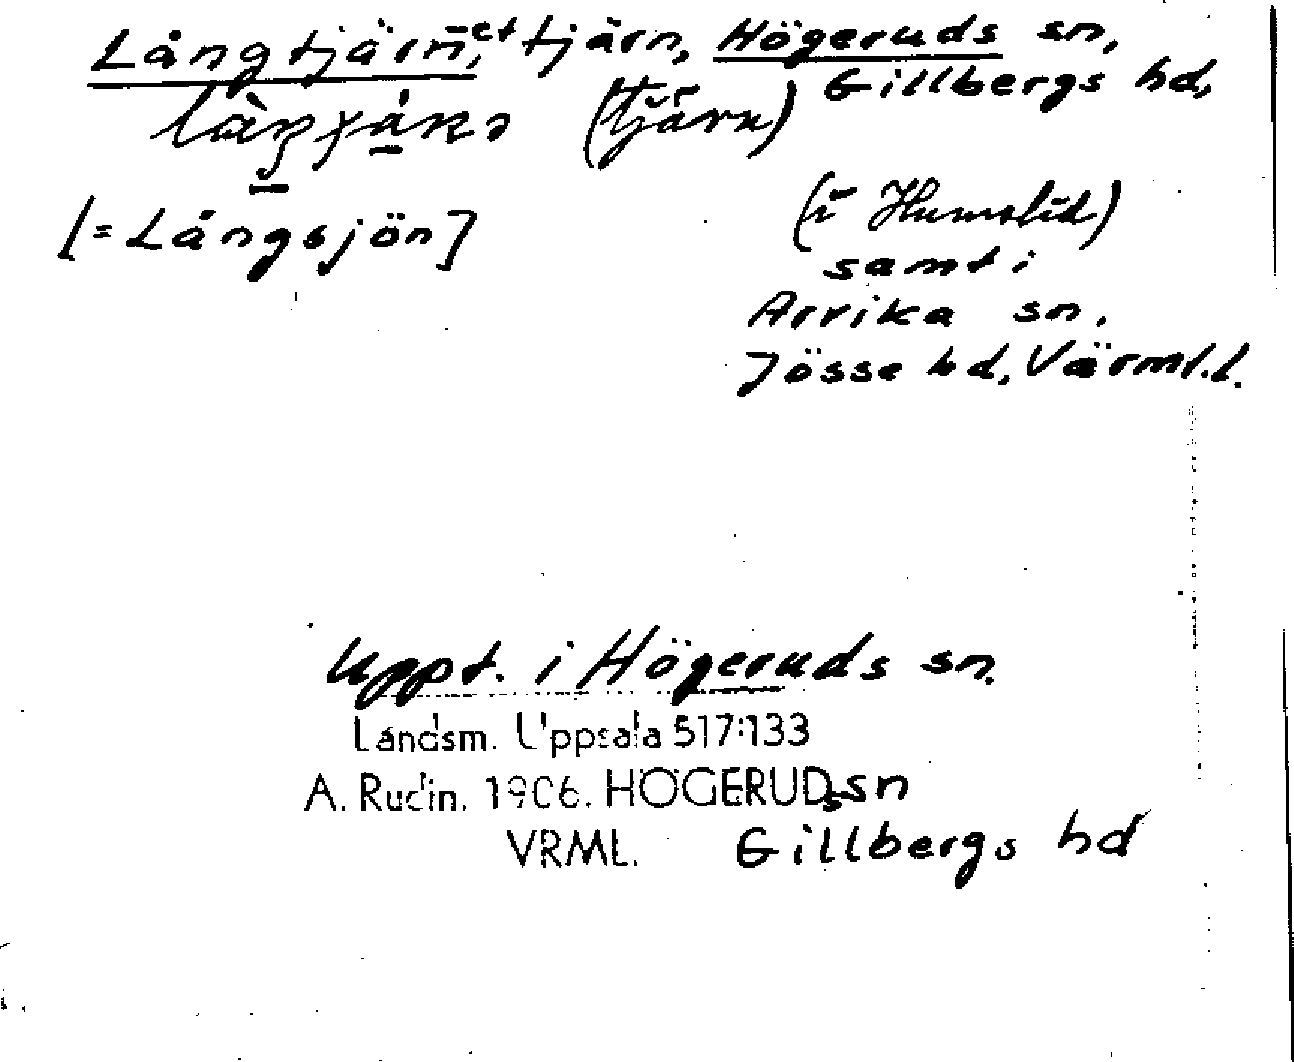 Långtjärn, et tjärn, Högeruds sn,
Gillbergs hd,
(tjärn)
(i Humslid)
[= Långsjön]
samt i
Arvika sn.
Jösse hd, Värml. l.
Uppt. i Högeruds sn.
Landsm. Uppsala 517:133
A. Rudin. 1906. HÖGERUDs sn
VRML. Gillbergs hd